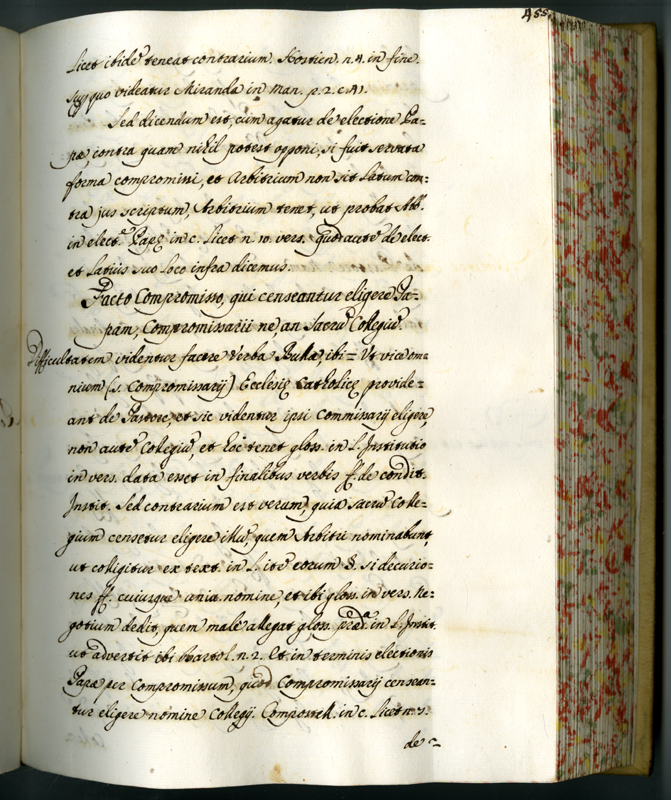 455
Licet ibidē teneat contrarium Hostien. n. 4. in fine.
quo videatur Miranda in Man. p. 2. c. 41.
Sed dicendum est, cum agatur de electione Pa=
pæ, contra quam nihil potest opponi, si fuit servata
forma compromissi, et Arbitrium non sit Latum con=
tra jus scriptum, Arbitrium tenet, ut probat Abb.
in elect.e Papę in c. Licet n. 10. vers. de elect.
et Latius suo loco infra dicemus.
Facto Compromisso, qui censeantur eligere Pa=
pam, Compromissarii ne, an Sacrū Collegiū.
Difficultatem videntur facere Verba Bullæ, ibi = Ut vice om=
nium (s. Compromissarij) Ecclesię Catholicę provide=
ant de Pastore, et sic videntur ipsi Commissarij eligere,
non autē Collegiū, et hoc tenet gloss. in L. Institutio
in vers. data esset in finalibus verbis ff. de condit.
Instit. Sed contrarium est verum, quia Sacrū Colle=
gium censetur eligere illū, quem Arbitri nominabunt,
ut colligitur ex text. in L. itē eorum §. si decurio=
nes ff. cuiusque nomine, et ibi gloss. in vers. Ne=
gotium dedit, quem male allegat gloss. præd.a in L. Instit.
ut advertit ibi Bartol. n. 2. Et in terminis electionis
Papæ per Compromissum, quod Compromissarij censean=
tur eligere nomine Collegij. Compostell. in c. Licet n. 7.
de